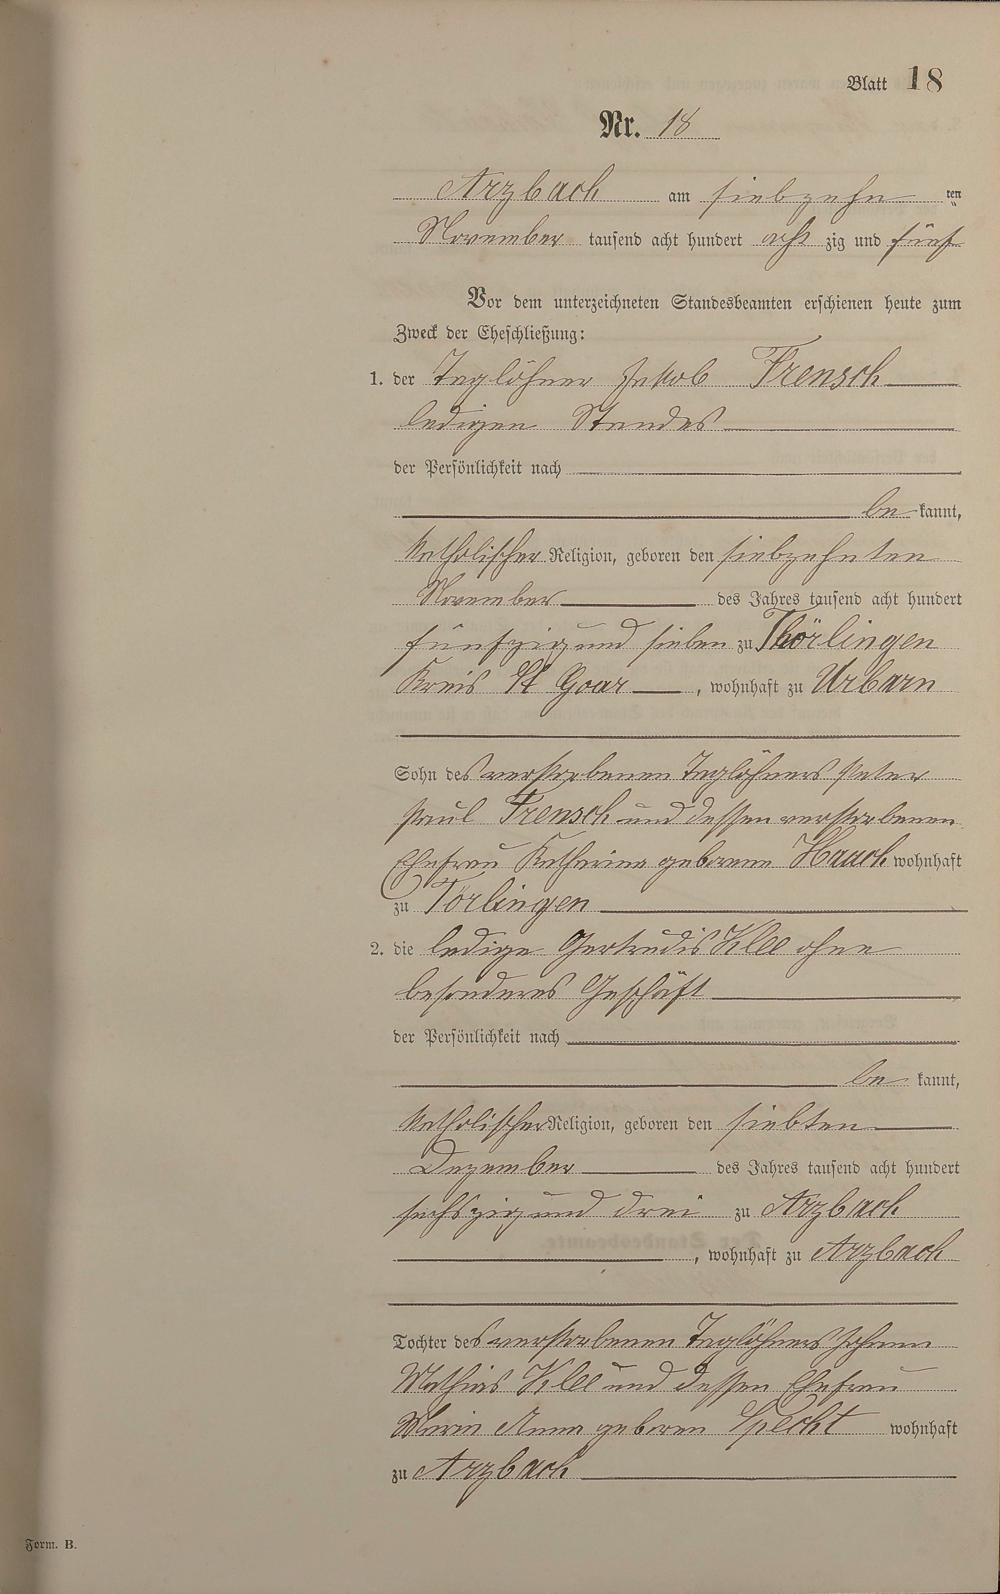 Blatt 18
Nr. 18
Arzbach am siebzehn ten
November tausend acht hundert acht zig und fünf
Vor dem unterzeichneten Standesbeamten erschienen heute zum
Zweck der Eheschließung:
1. der Taglöhner Jakob Frensch
ledigen Standes
der Persönlichkeit nach
be kannt,
katholischer Religion, geboren den siebzehnten
November des Jahres tausend acht hundert
fünfzig und sieben zu Thörlingen
Kreis St Goar, wohnhaft zu Urbarn
Sohn des verstorbenen Taglöhners Peter
Paul Frensch und dessen verstorbenen
Ehefrau Katharina geborene Haach wohnhaft
zu Törlingen
2. die ledige Gertrudis Klee ohne
besonderes Geschäft
der Persönlichkeit nach
be kannt,
katholischer Religion, geboren den siebten
Dezember des Jahres tausend acht hundert
sechszig und drei zu Arzbach
, wohnhaft zu Arzbach
Tochter des verstorbenen Taglöhners Johann
Mathias Klee und dessen Ehefrau
Maria Anna geboren Specht wohnhaft
zu Arzbach
Form. B.